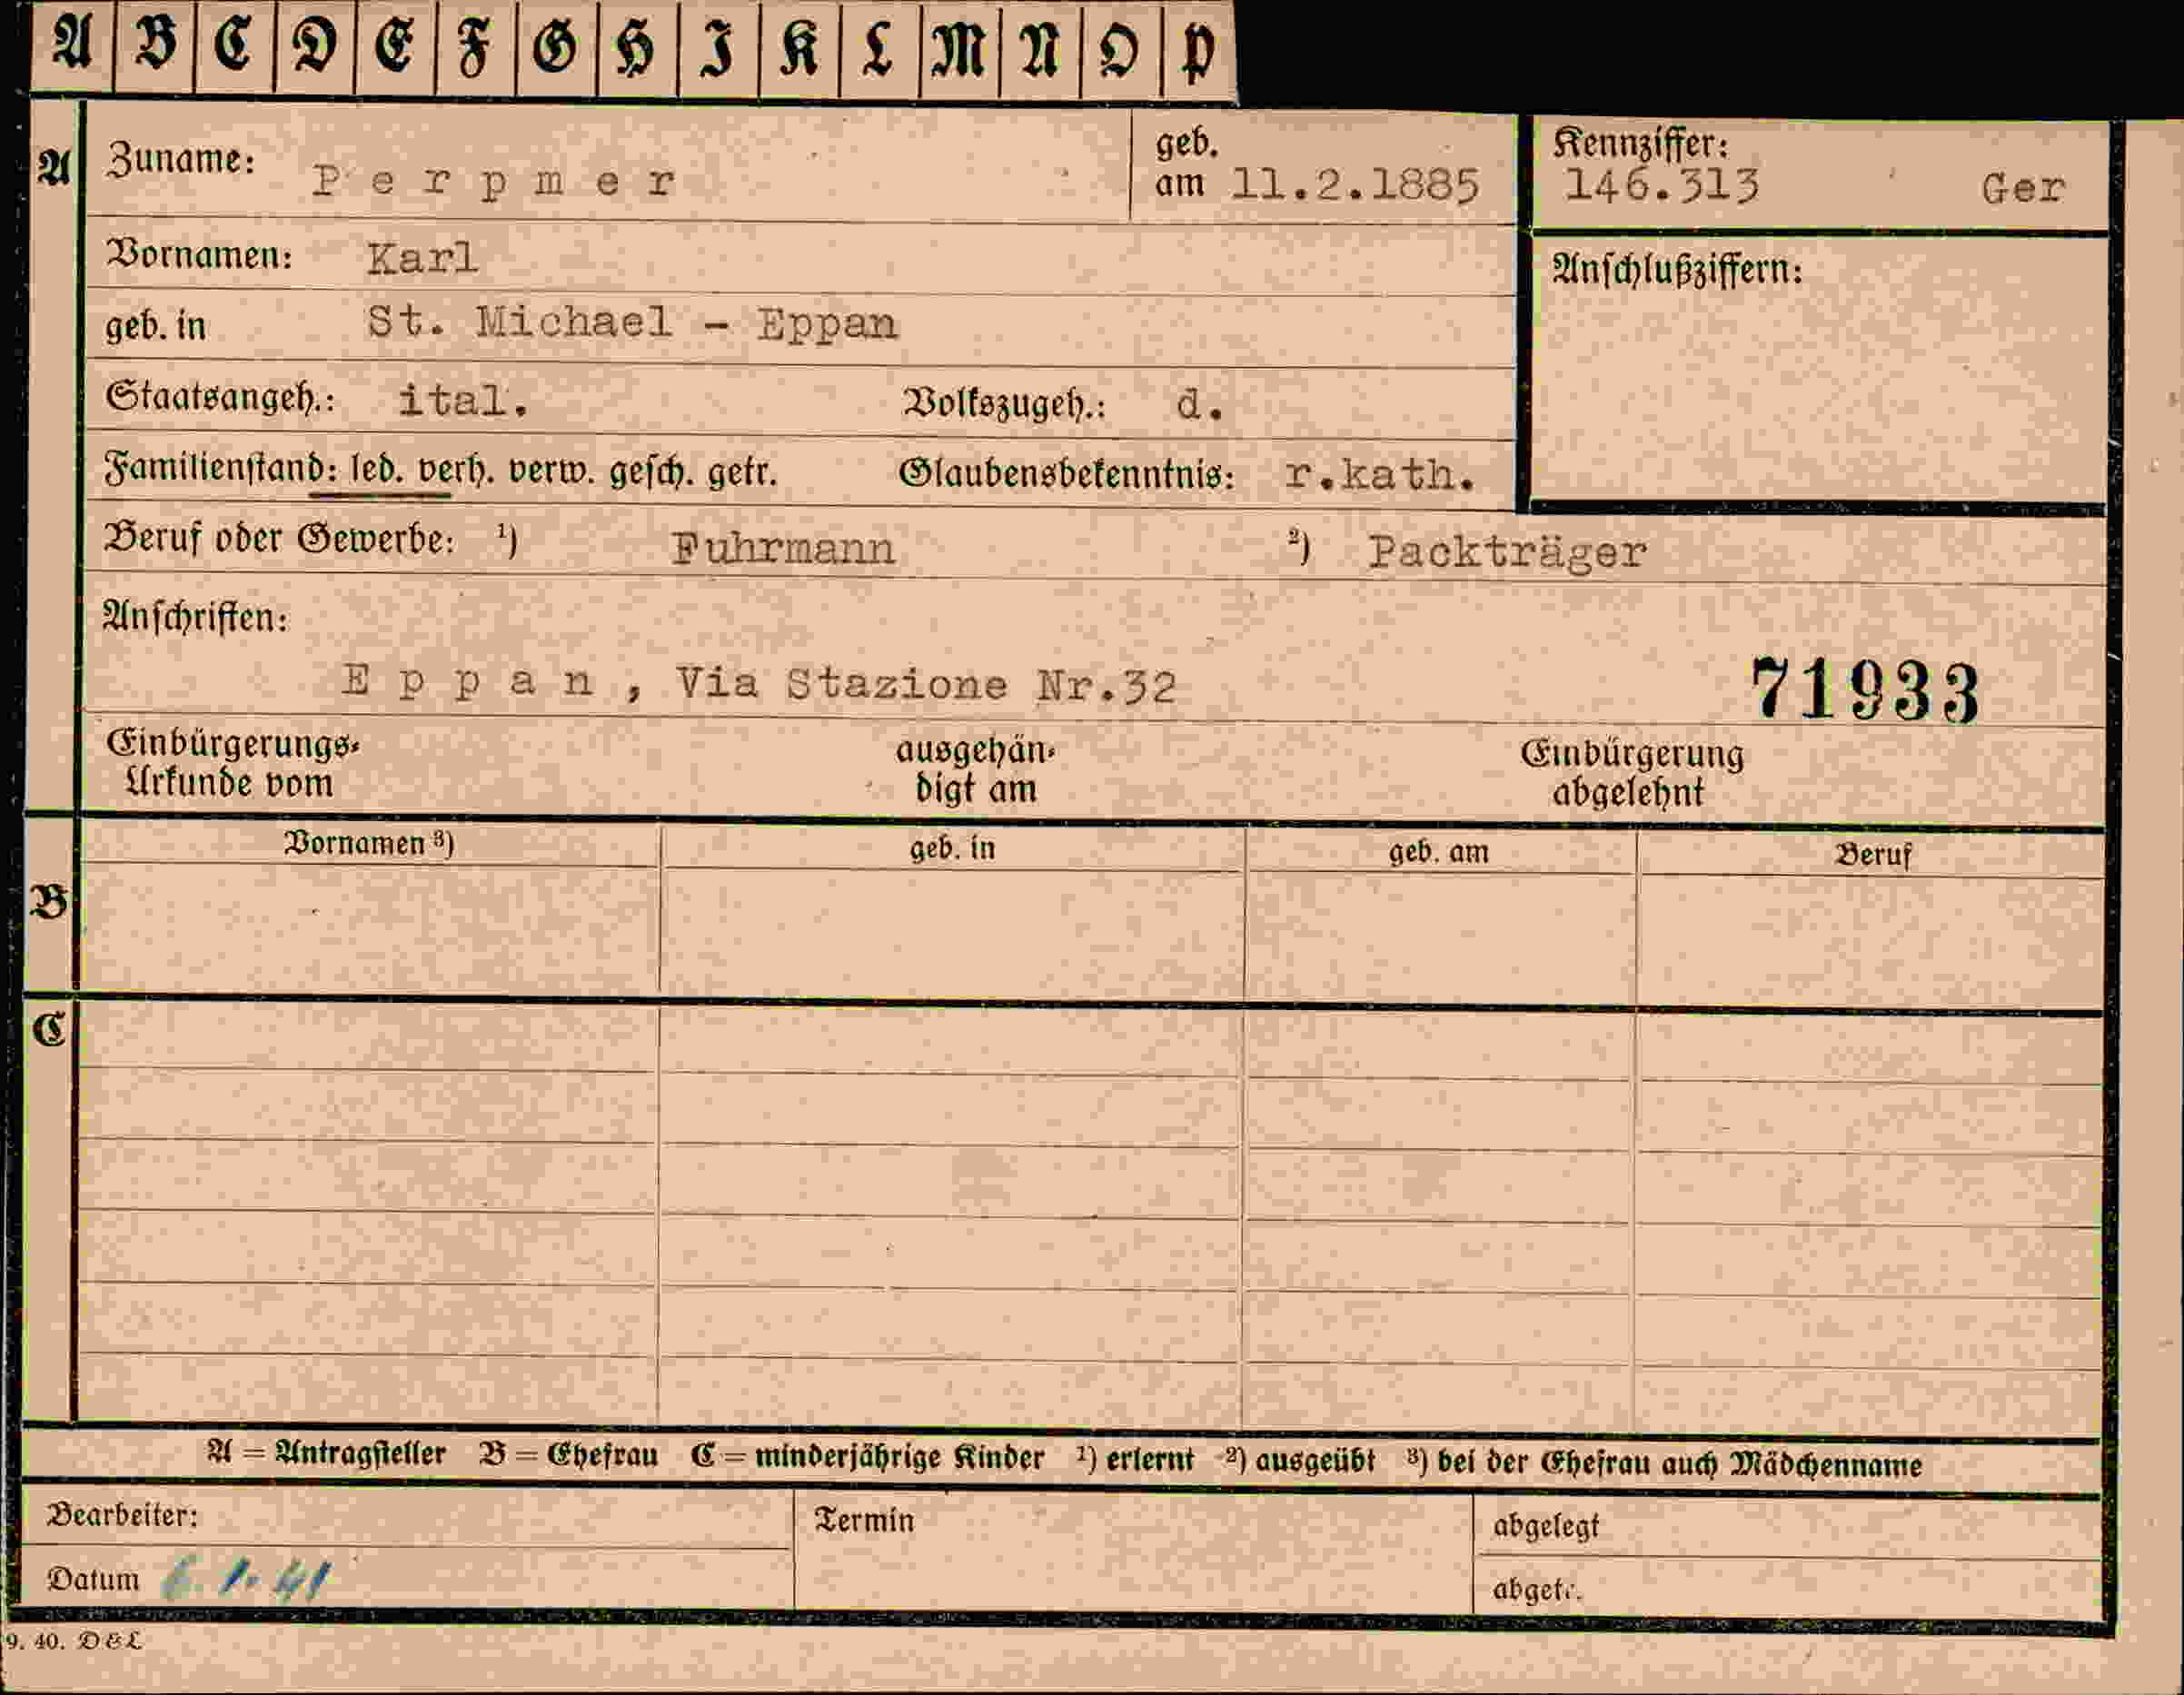 A B C D E F G H I K L M N O P
A Zuname: Perpmer geb. am 11.2.1885 Kennziffer: 146.313 Ger
Vornamen: Karl
Anschlußziffern:
geb. in St. Michael - Eppan
Staatsangeh.: ital. Volkszugeh.: d.
Familienstand: led. verh. verw. gesch. getr. Glaubensbekenntnis: r.kath.
Beruf oder Gewerbe: ¹) Fuhrmann ²) Packträger
Anschriften:
Eppan, Via Stazione Nr.32 71933
Einbürgerungs- ausgehän- Einbürgerung
Urkunde vom digt am abgelehnt
Vornamen ³) geb. in geb. am Beruf
B
C
A = Antragsteller B = Ehefrau C = minderjährige Kinder ¹) erlernt ²) ausgeübt ³) bei der Ehefrau auch Mädchenname
Bearbeiter: Termin abgelegt
Datum 6. 1. 41 abgetr.
9. 40. D&L